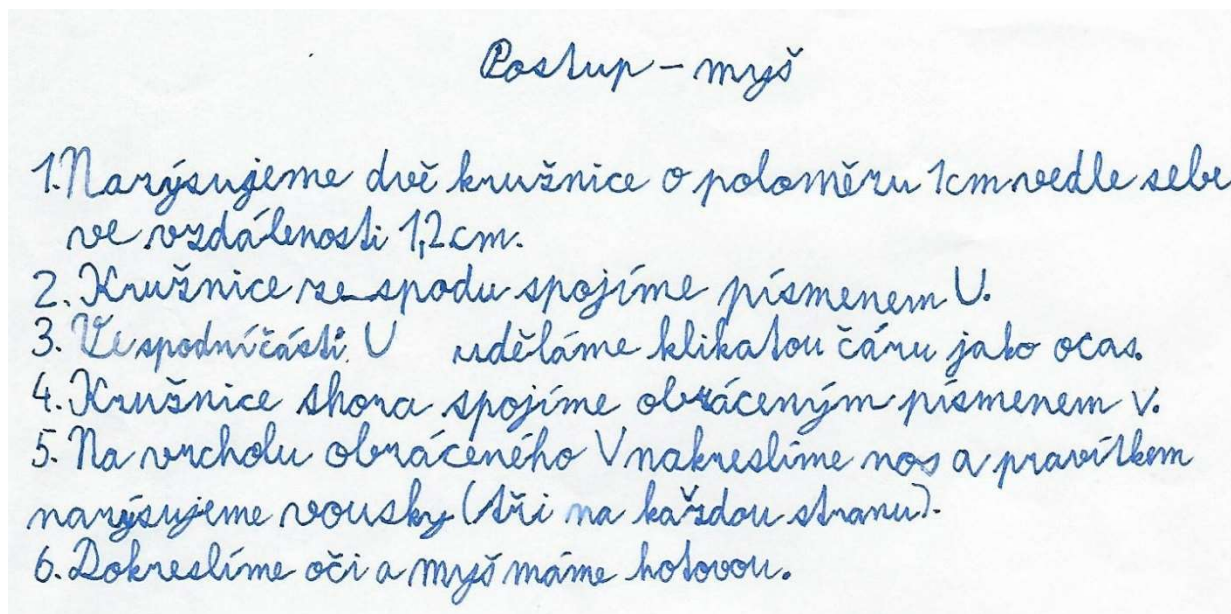 Postup - myš
1. Narýsujeme dvě kružnice o poloměru 1cm vedle sebe
ve vzdálenosti 1,2 cm.
2. Kružnice ze spodu spojíme písmenem U.
3. Ve spodní části U uděláme klikatou čáru jako ocas.
4. Kružnice shora spojíme obráceným písmenem V.
5. Na vrcholu obráceného V nakreslíme nos a pravítkem
narýsujeme vousky (tři na každou stranu).
6. Dokreslíme oči a myš máme hotovou.